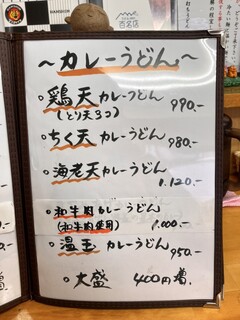 百名店
~カレーうどん~
○鶏天カレーうどん 990.-
(とり天3コ)
○ちく天カレーうどん 980.-
○海老天カレーうどん 1.120.-
○和牛肉カレーうどん
(和牛肉使用) 1.000.-
○温玉カレーうどん 950.-
○大盛 400円増.